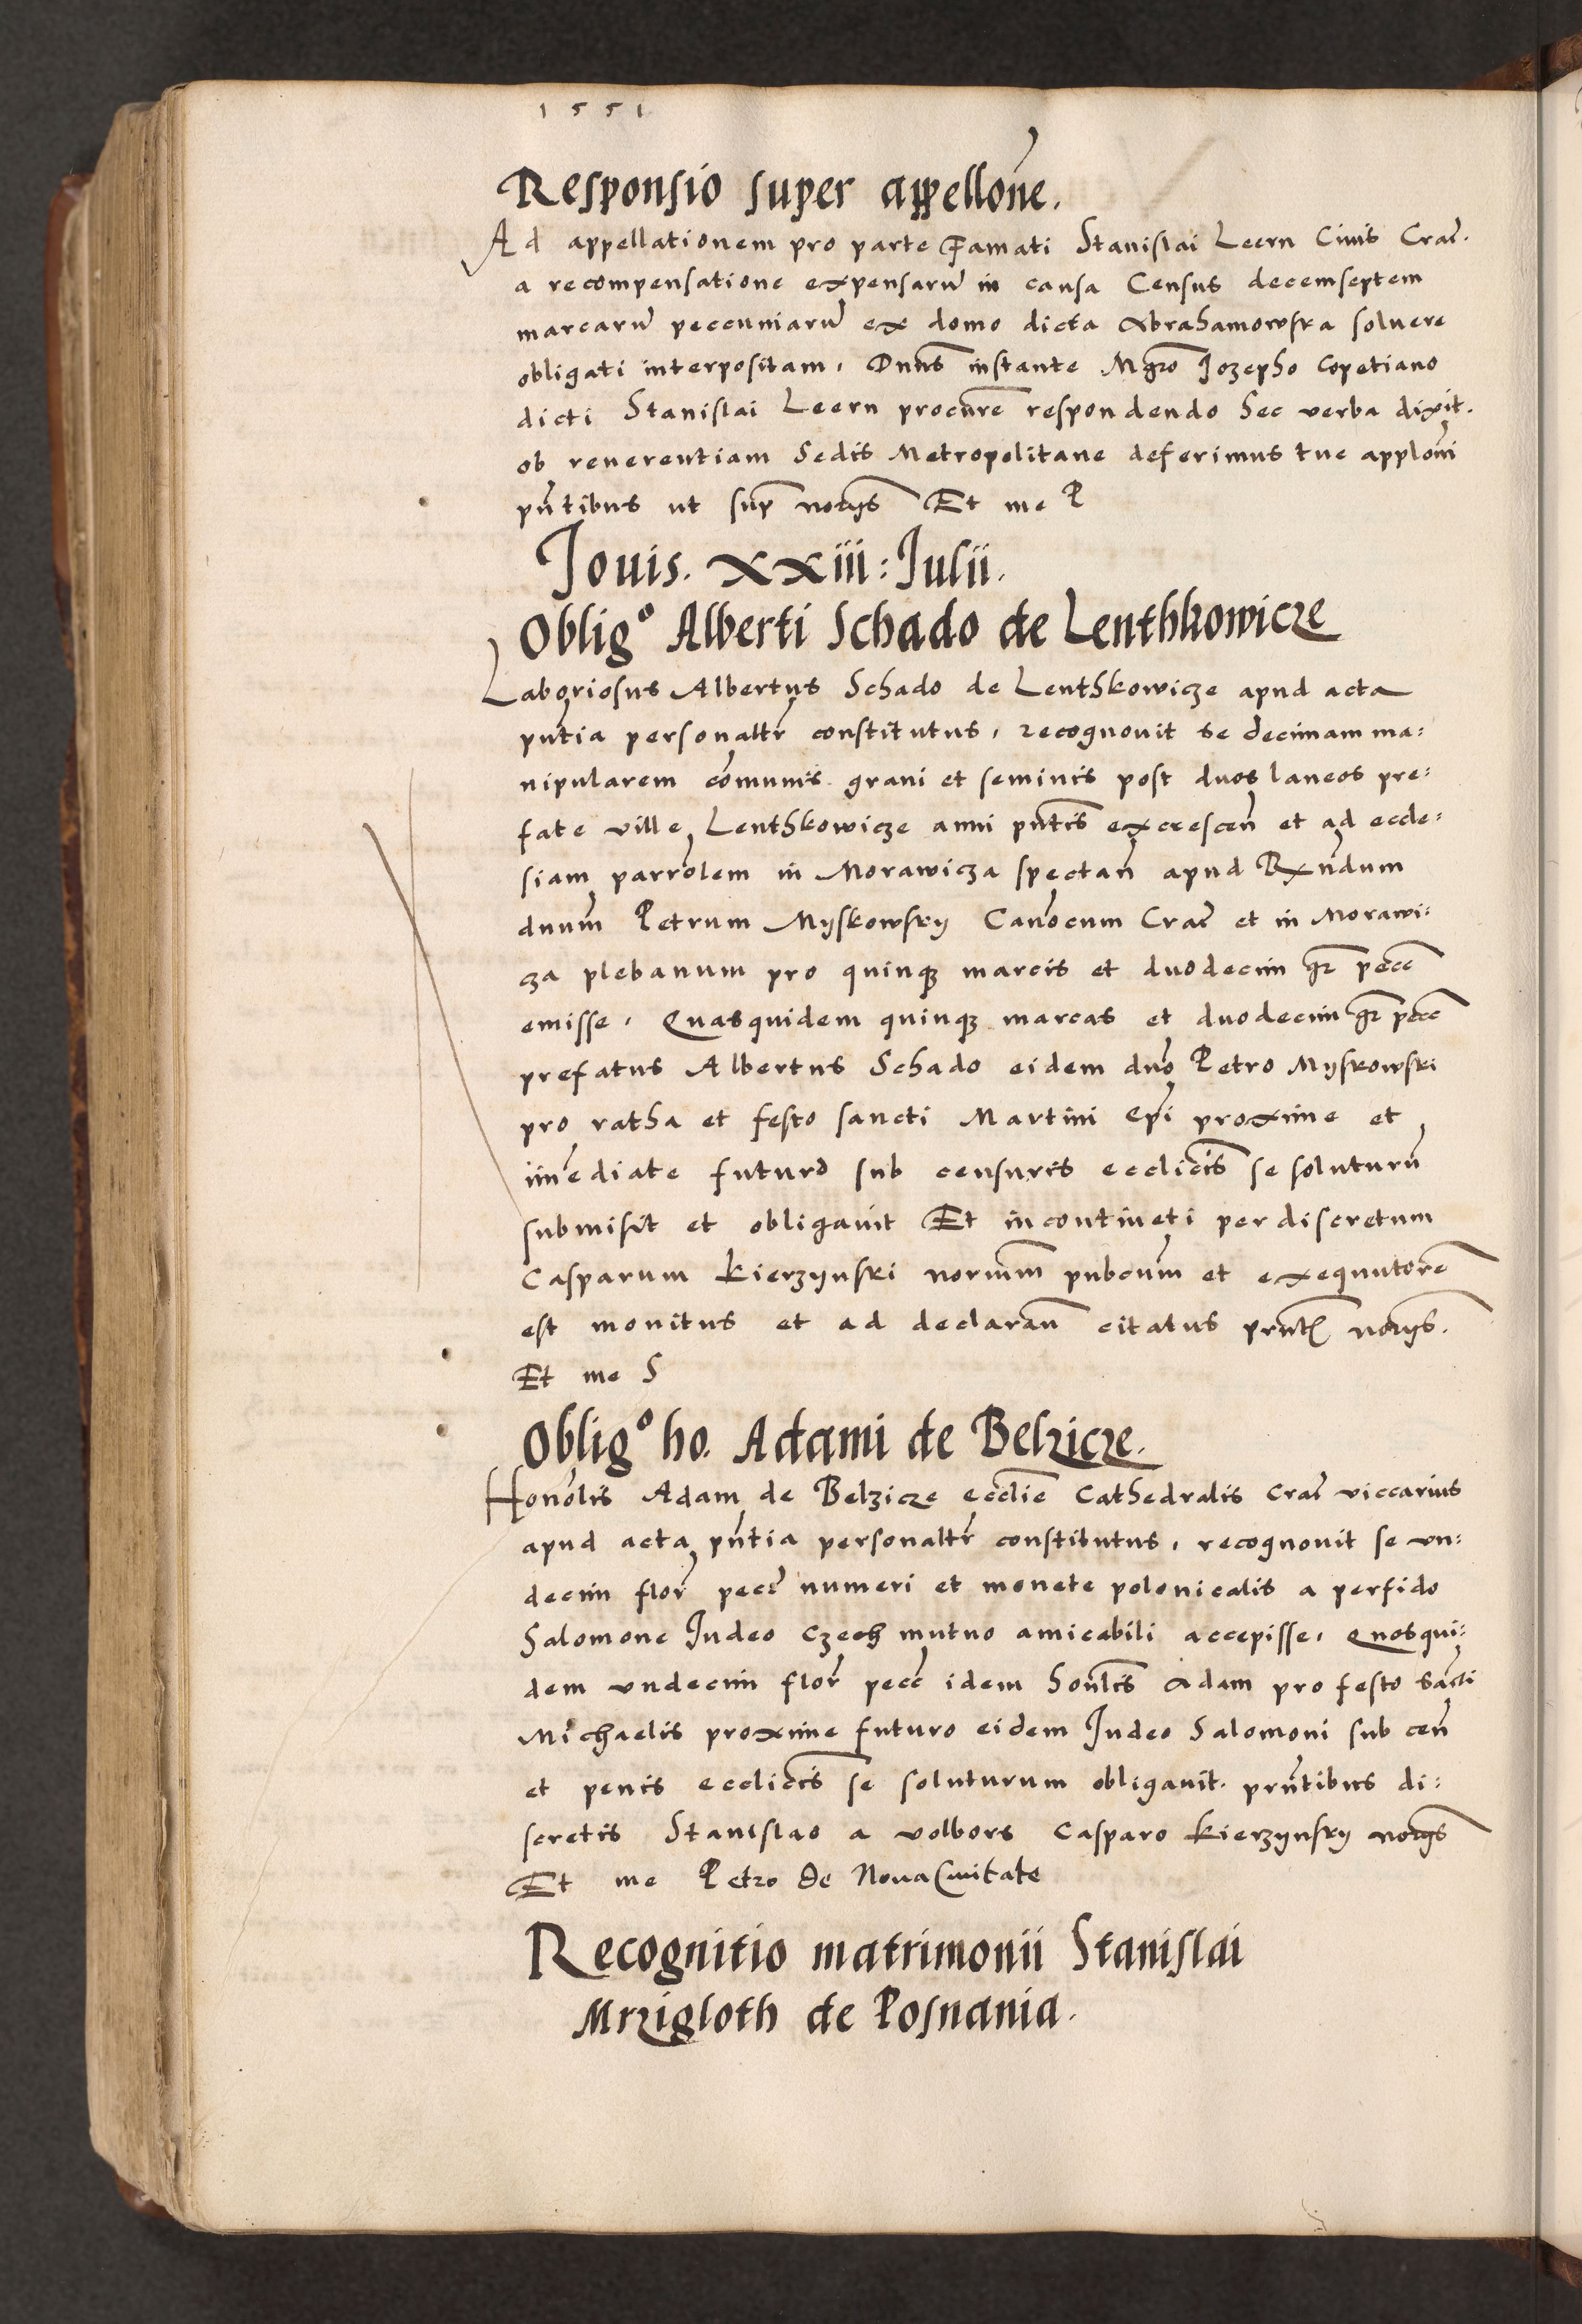 1551
Responsio super appellone.
Ad appellationem pro parte Famati Stanislai Leern Civis Crac.
a recompensatione expensaru in causa Census decemseptem
marcaru peccuniaru ex domo dicta Abrahamowska solvere
obligati interpositam, Dnns instante Mgro Jozepho Copetiano
dicti Stanislai Leern procure respondendo hec verba dixit.
ob reverentiam Sedis Metropolitane deferimus tue apploni
pntibus ut sup notys Et me P
Jovis. xxiii: Julii.
Oblig° Alberti Schado de Lenthkowicze
Laboriosus Albertus Schado de Lenthkowicze apud acta
pntia personaltr constitutus, recognovit se decimam ma:
nipularem comunis grani et seminis post duos laneos pre:
fate ville Lenthkowicze anni pntis excrescen et ad eccle:
siam parrolem in Morawicza spectan apud Rndum
dnum Petrum Myskowsky Canocum Crac et in Morawi:
cza plebanum pro quinq marcis et duodecim gr pecc
emisse, Quasquidem quinq marcas et duodecim gr pecc
prefatus Albertus Schado eidem dno Petro Myskowski
pro ratha et festo sancti Martini Epi proxime et
imediate futuro sub censuris ecclicis se soluturu
submisit et obligavit Et incontineti per discretum
Casparum Kierzynski norium pubcum et exequutore
est monitus et ad declaran citatus prnt notys.
Et me S
Oblig° ho. Adami de Belzicze.
Honolis Adam de Belzicze ecclie Cathedralis Crac viccarius
apud acta pntia personaltr constitutus, recognovit se un:
decim flor pecc numeri et monete polonicalis a perfido
Salomone Judeo Czech mutuo amicabili accepisse, Quosqui:
dem undecim flor pecc idem honlis Adam pro festo sacti
Michaelis proxime futuro eidem Judeo Salomoni sub cen
et penis ecclicis se soluturum obligavit. prntibus di:
scretis Stanislao a volbors Casparo Kierzynsky notys
Et me Petro de Nova Civitate
Recognitio matrimonii Stanislai
Mrzigloth de Posnania.